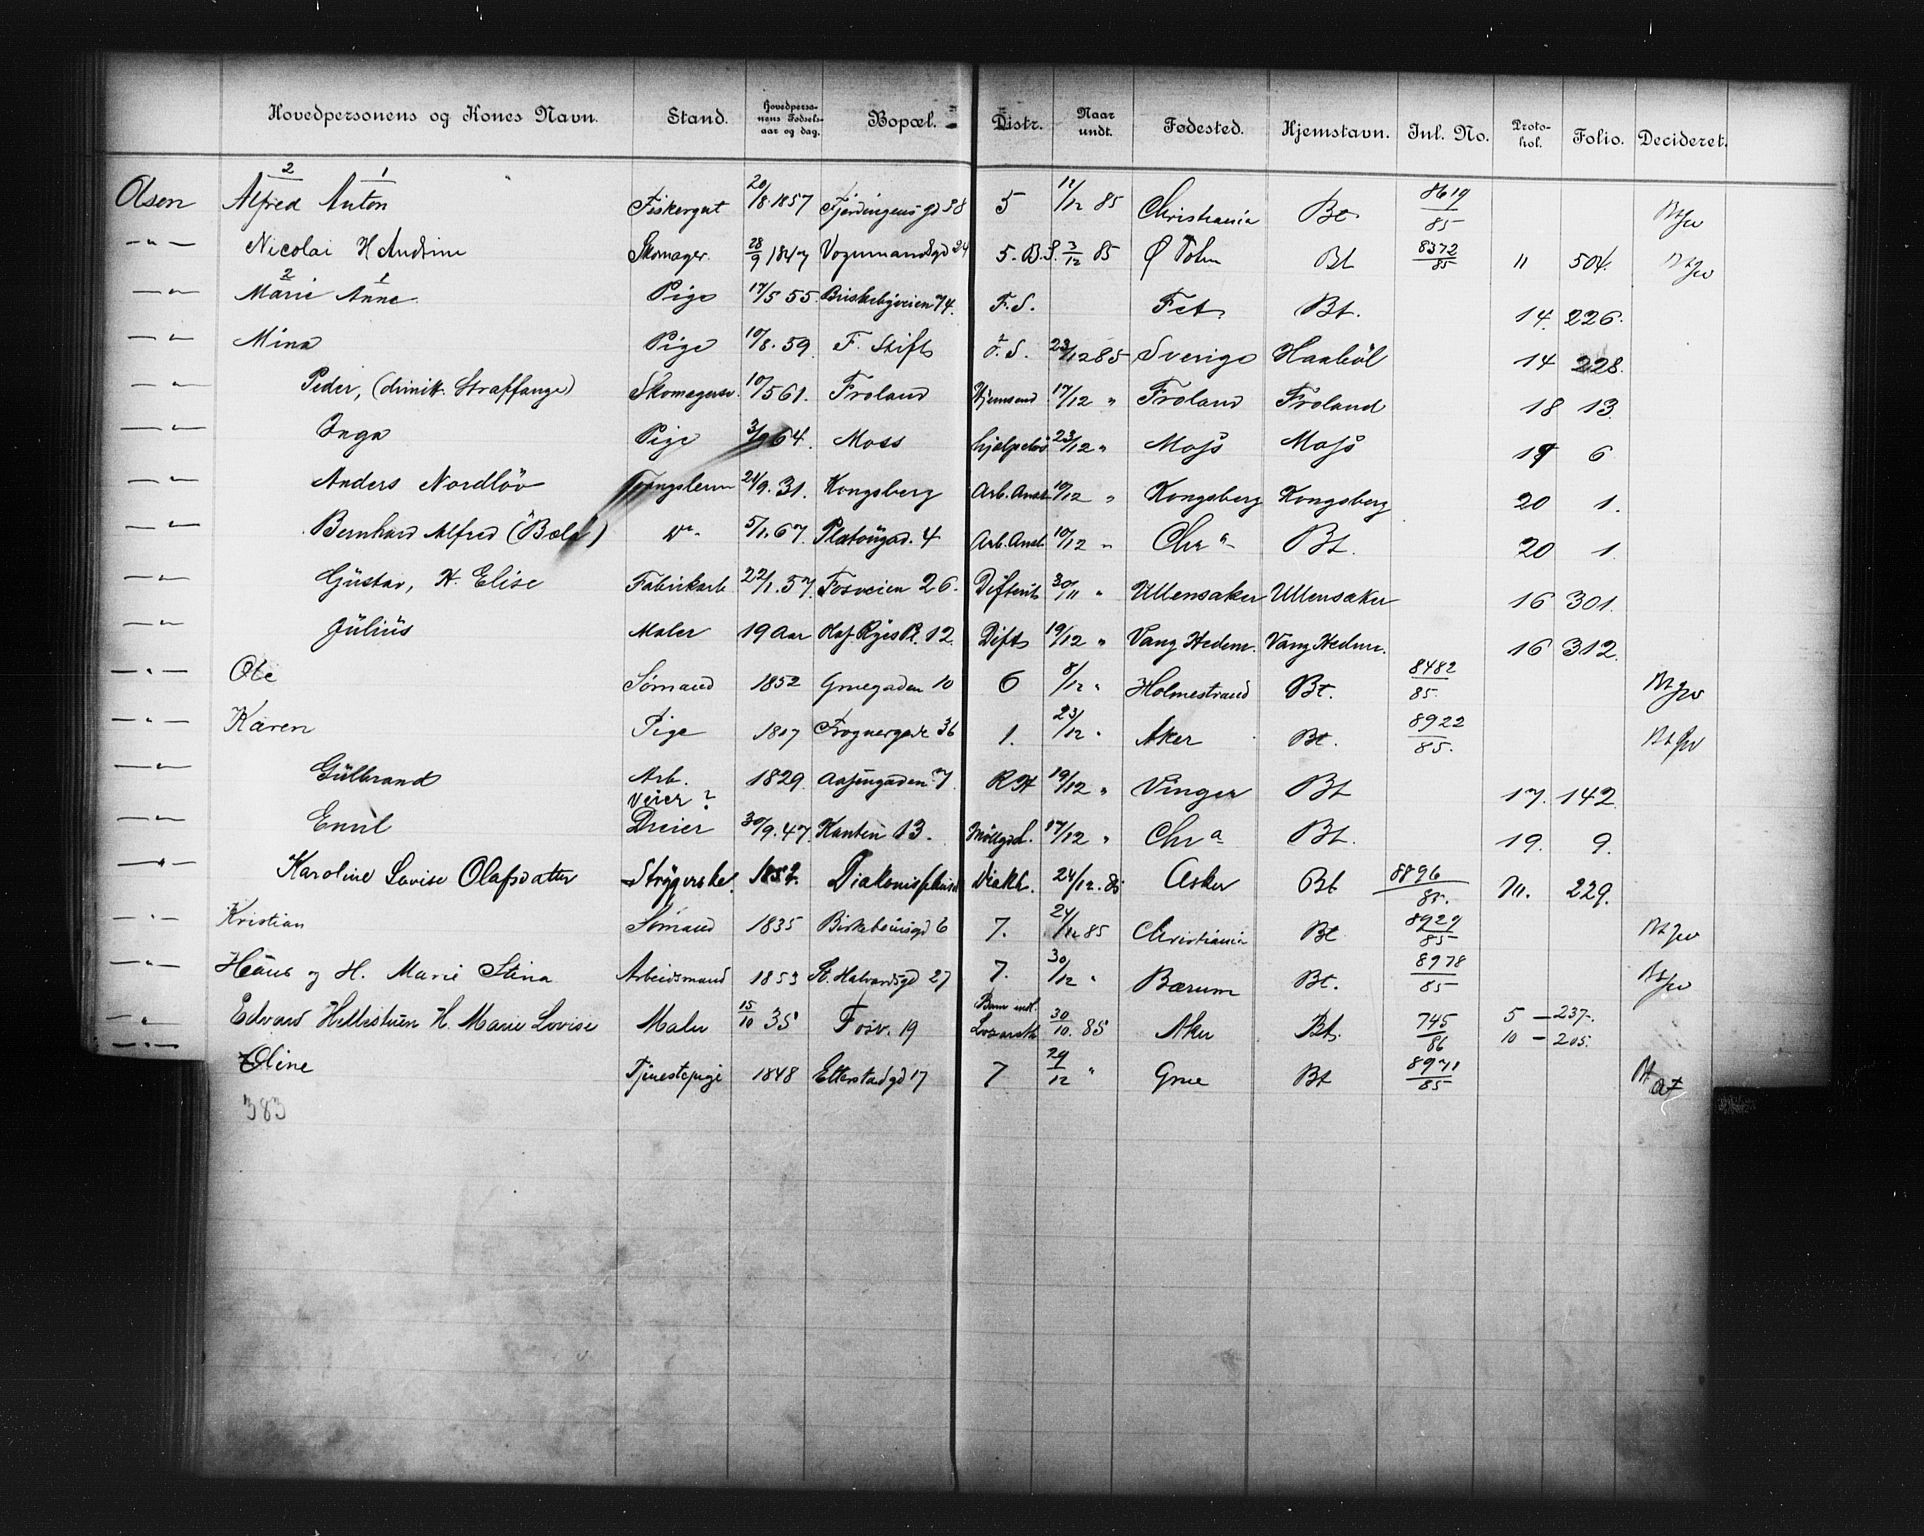 Hovedpersonens og Kones Navn. Stand. Hovedpersonens Fødselsaar og dag. Bopæl. Distr. Naar undt. Fødested. Hjemstavn. Inl. No. Protokol. Folio. Decideret.
Olsen Alfred 2 Anton 1 Fiskergut 20/8 1857 Fjerdingens gd 38 5 12/12 85 Christiania Bt. 8619/85
—"— Nicolai H Andrine Skomager 28/9 1847 Vognmandsgd 24 5. B.S. 3/12 85 Ø Toten Bt 8372/85 11 504.
—"— Marie 2 Anne 1 Pige 17/5 55 Briskebyveien 74. F. S. Fet Bt. 14. 226.
—"— Mina Pige 10/8. 59. F. Stift 23/12 85 Sverige Haaböl 14 228.
—"— Peder, (dimit. Straffange) Skomagersv. 10/5 61. Froland Hjemsend 17/12 " Froland Froland 18 13.
—"— Inga Pige 3/9 64. Moss hjælpeløs 23/12 " Moss Moss 6
—"— Anders Nordlöv 21/9. 31. Kongsberg Arb. Anst 10/12 " Kongsberg Kongsberg 20 1.
—"— Bernhard Alfred Do 5/1. 67. Platöugad. 4 Arb. Anst 10/12 " Chr a Bt. 20 1.
—"— Gustav, H. Elise Fabrikarb 22/1. 57. Fosveien 26. 30/11 " Ullensaker Ullensaker 16 301.
—"— Julius Maler 19 Aar Olaf Ryes Pl. 12. 19/12 " Vang Hedem. Vang Hedem. 16 312.
—"— Ole Sømand 1852 Grnegaden 10 6 8/12 " Holmestrand Bt. 8482/85
—"— Karen Pige Frognergade 36 1. 23/12 " Aker Bt. 8922/85.
—"— Gulbrand Arb. 1829 R H 19/12 " Vinger Bt 17. 142
Veier ?
—"— Emil Dreier 30/9. 47. Kanten 13. Möllgd. 17/12 " Chr a Bt. 19. 9.
—"— Karoline Lovise Olafsdatter Strygerske. 1852. Diakonissehuset Diakh. 24/12. 85 Asker Bt 8896/85. 229.
—"— Kristian Sømand 1835 Birkebeinsgd 6 7. 24/12 85 Christiania Bt 8929/85
—"— Hans og H. Marie Stina Arbeidsmand 1853 St. Halvardsgd 27 7. 30/12 " Bærum Bt. 8978/85
—"— Edvard Hellestuen H. Marie Lovise Maler 15/10 35 Fosv. 19 30/10. 85 Aker Bt. 745/86 5 — 237.
10 — 205.
—"— Oline Tjenestepige 1848 Etterstadgd 17 7 29/12 " Grue Bt 8971/85
383